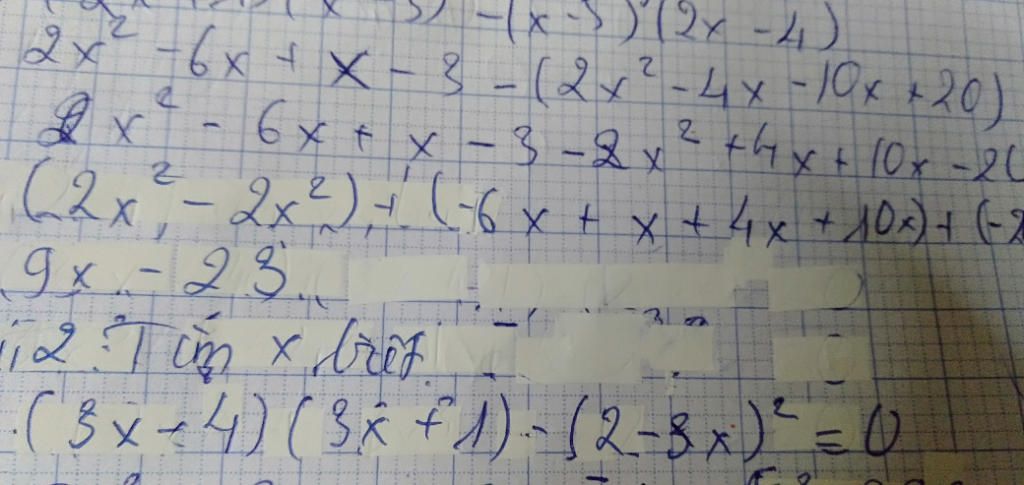 (x - 3) - (x - 5) (2x - 4)
2x² - 6x + x - 3 - (2x² - 4x - 10x + 20)
2x² - 6x + x - 3 - 2x² + 4x + 10x - 20
(2x² - 2x²) + (-6x + x + 4x + 10x) + (-2
9x - 23
2: Tìm x, biết
(3x - 4) (3x + 1) - (2 - 3x)² = 0